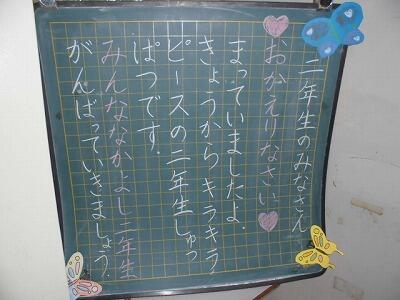 二年生のみなさん
おかえりなさい
まっていましたよ。
きょうから キラキラ
ピースの二年生しゅっ
ぱつです。
みんななかよし二年生
がんばっていきましょう。